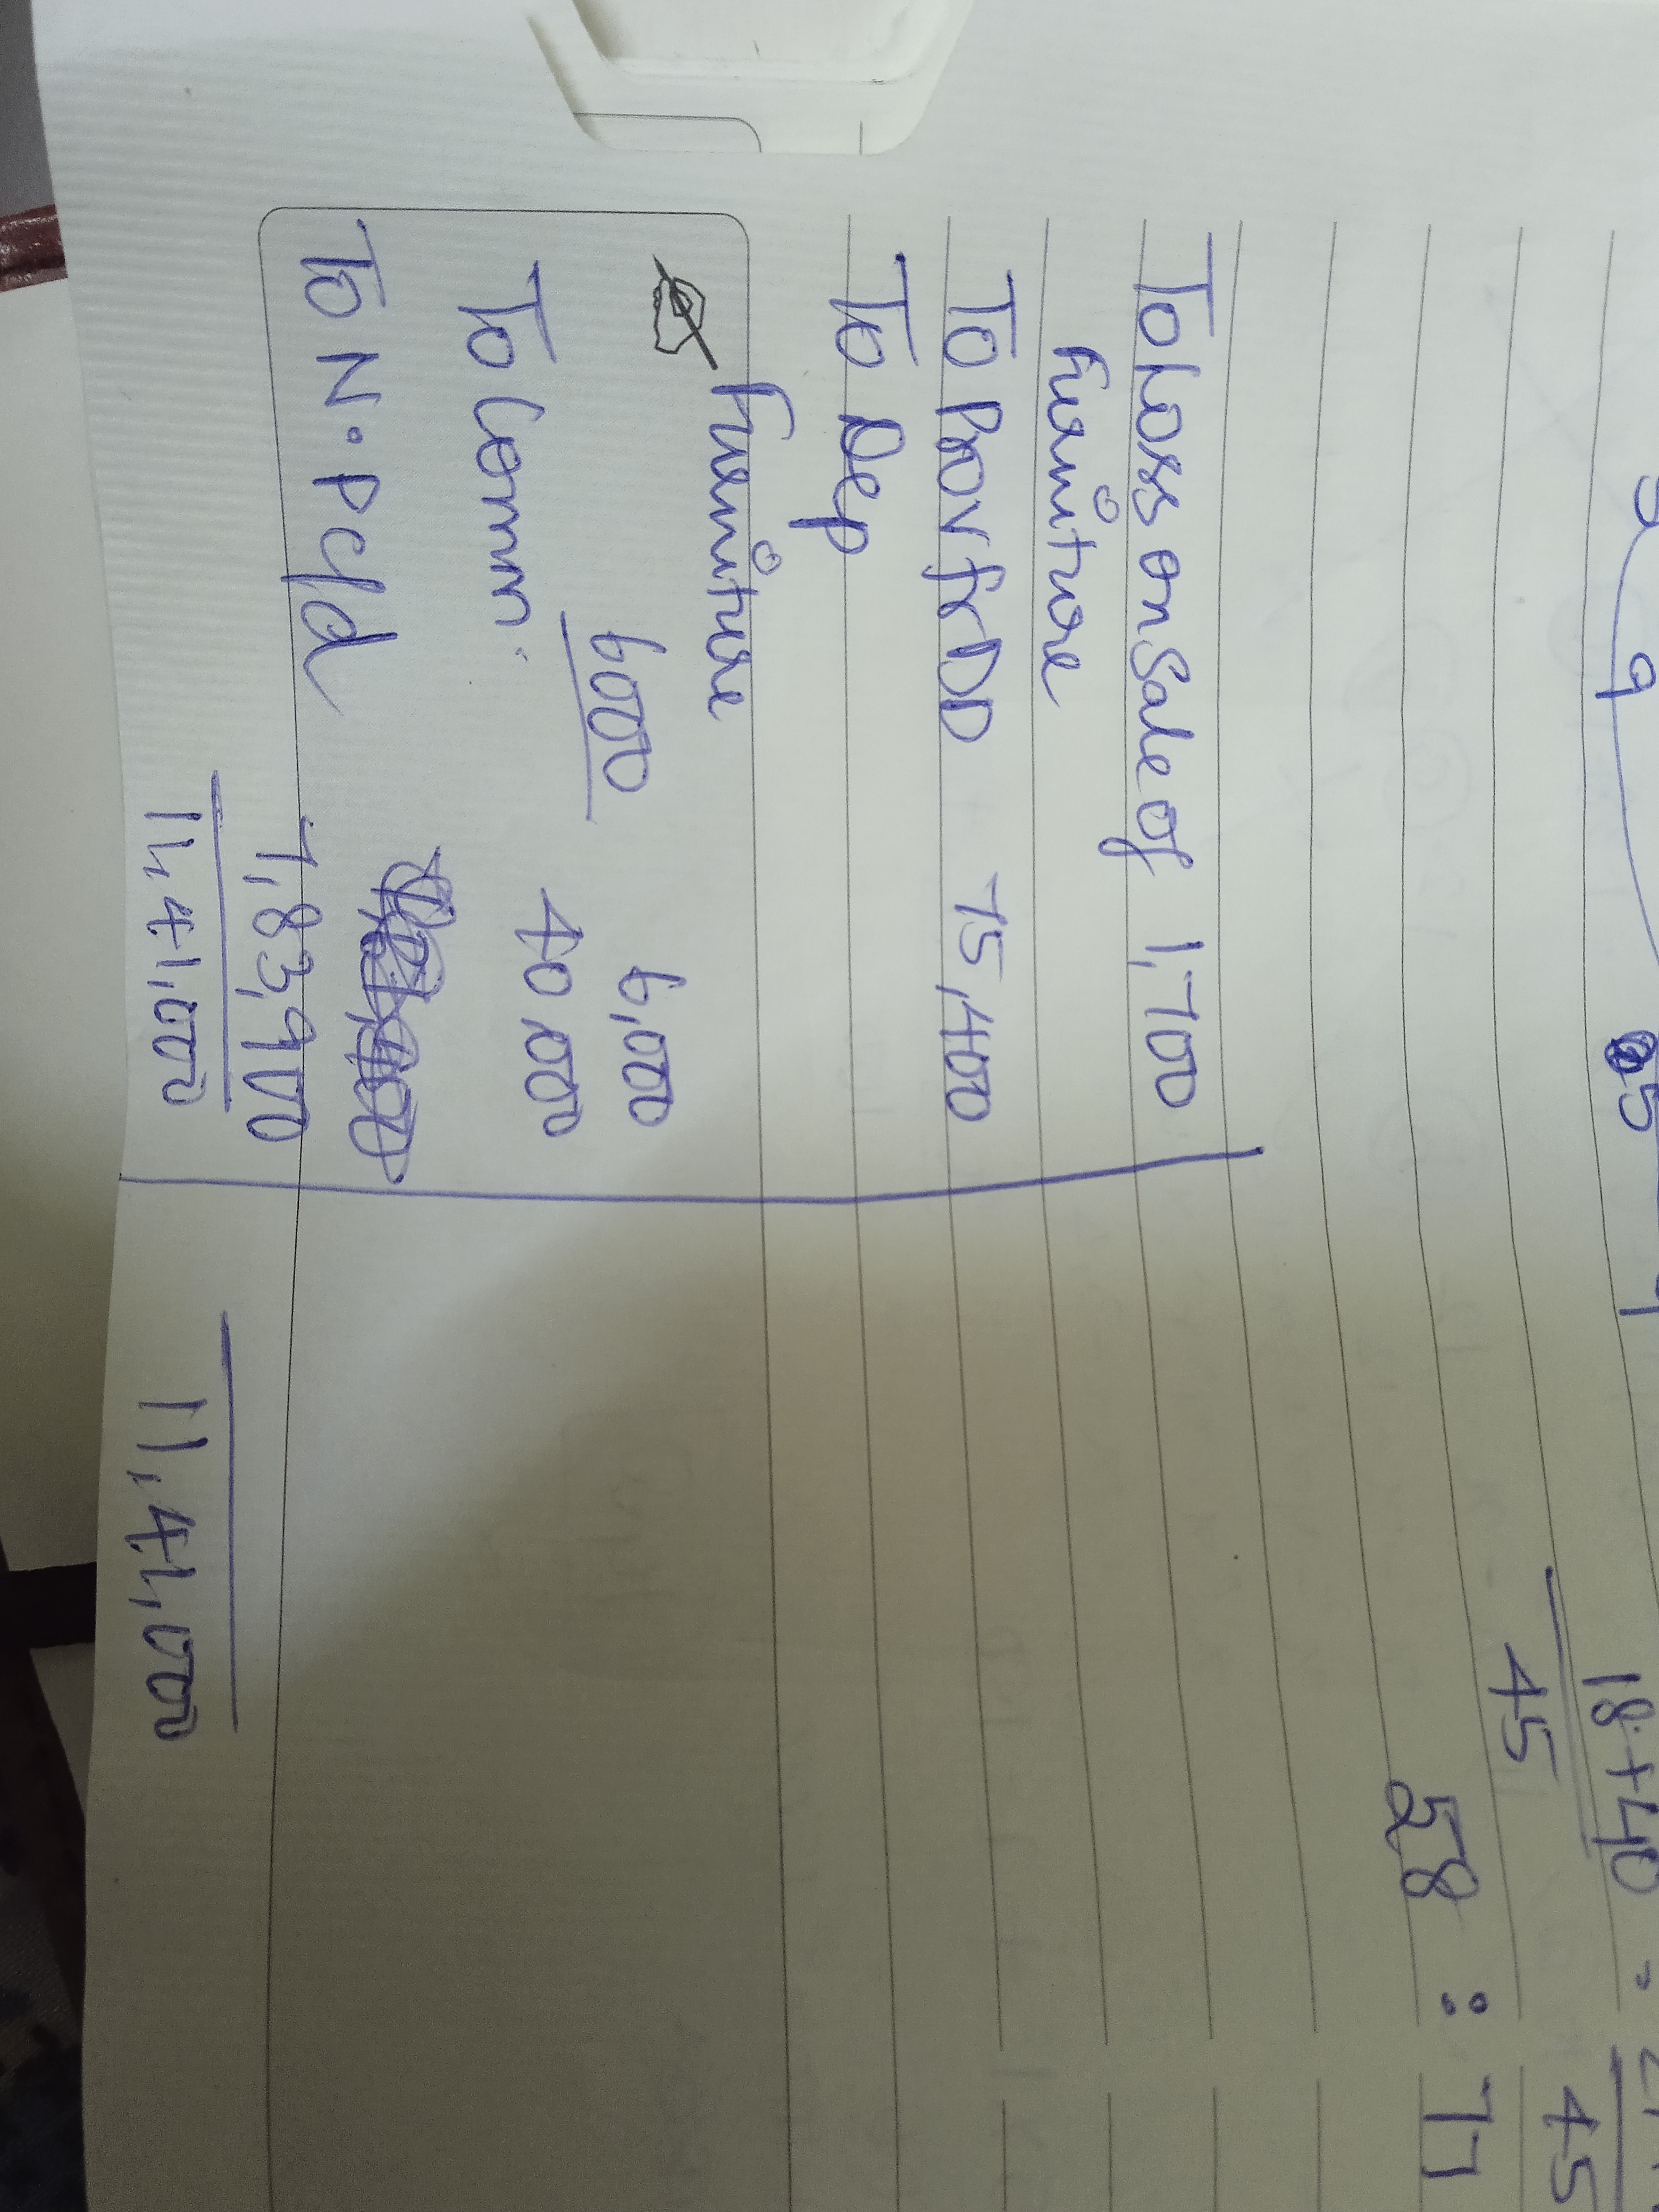 9
5
18+40
45
45
58 :
To Loss on Sale of 1,700
Furniture
To Prov fr DD 75,400
To Dep
Furniture
6000 6,000
To Comm. 40,000
To N.P c/d
7,83,900
11,41,000 11,41,000